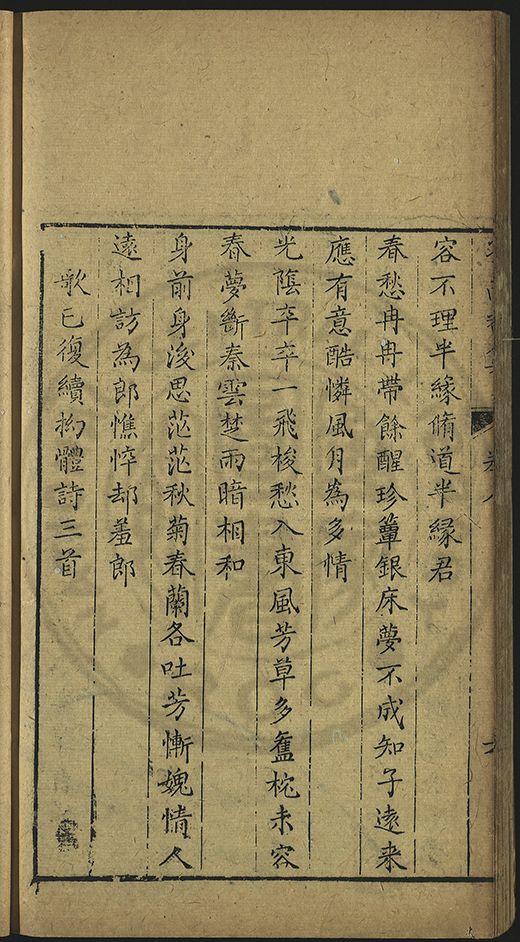 容不理半緣脩道半緣君
春愁冉冉帶餘酲珍簟銀床夢不成知子遠来
應有意酷憐風月為多情
光陰卒卒一飛梭愁入東風芳草多舊枕未容
春夢斷秦雲楚雨暗相和
身前身後思茫茫秋菊春蘭各吐芳慚媿情人
遠相訪為郎憔悴却羞郎
歌已復續拗體詩三首